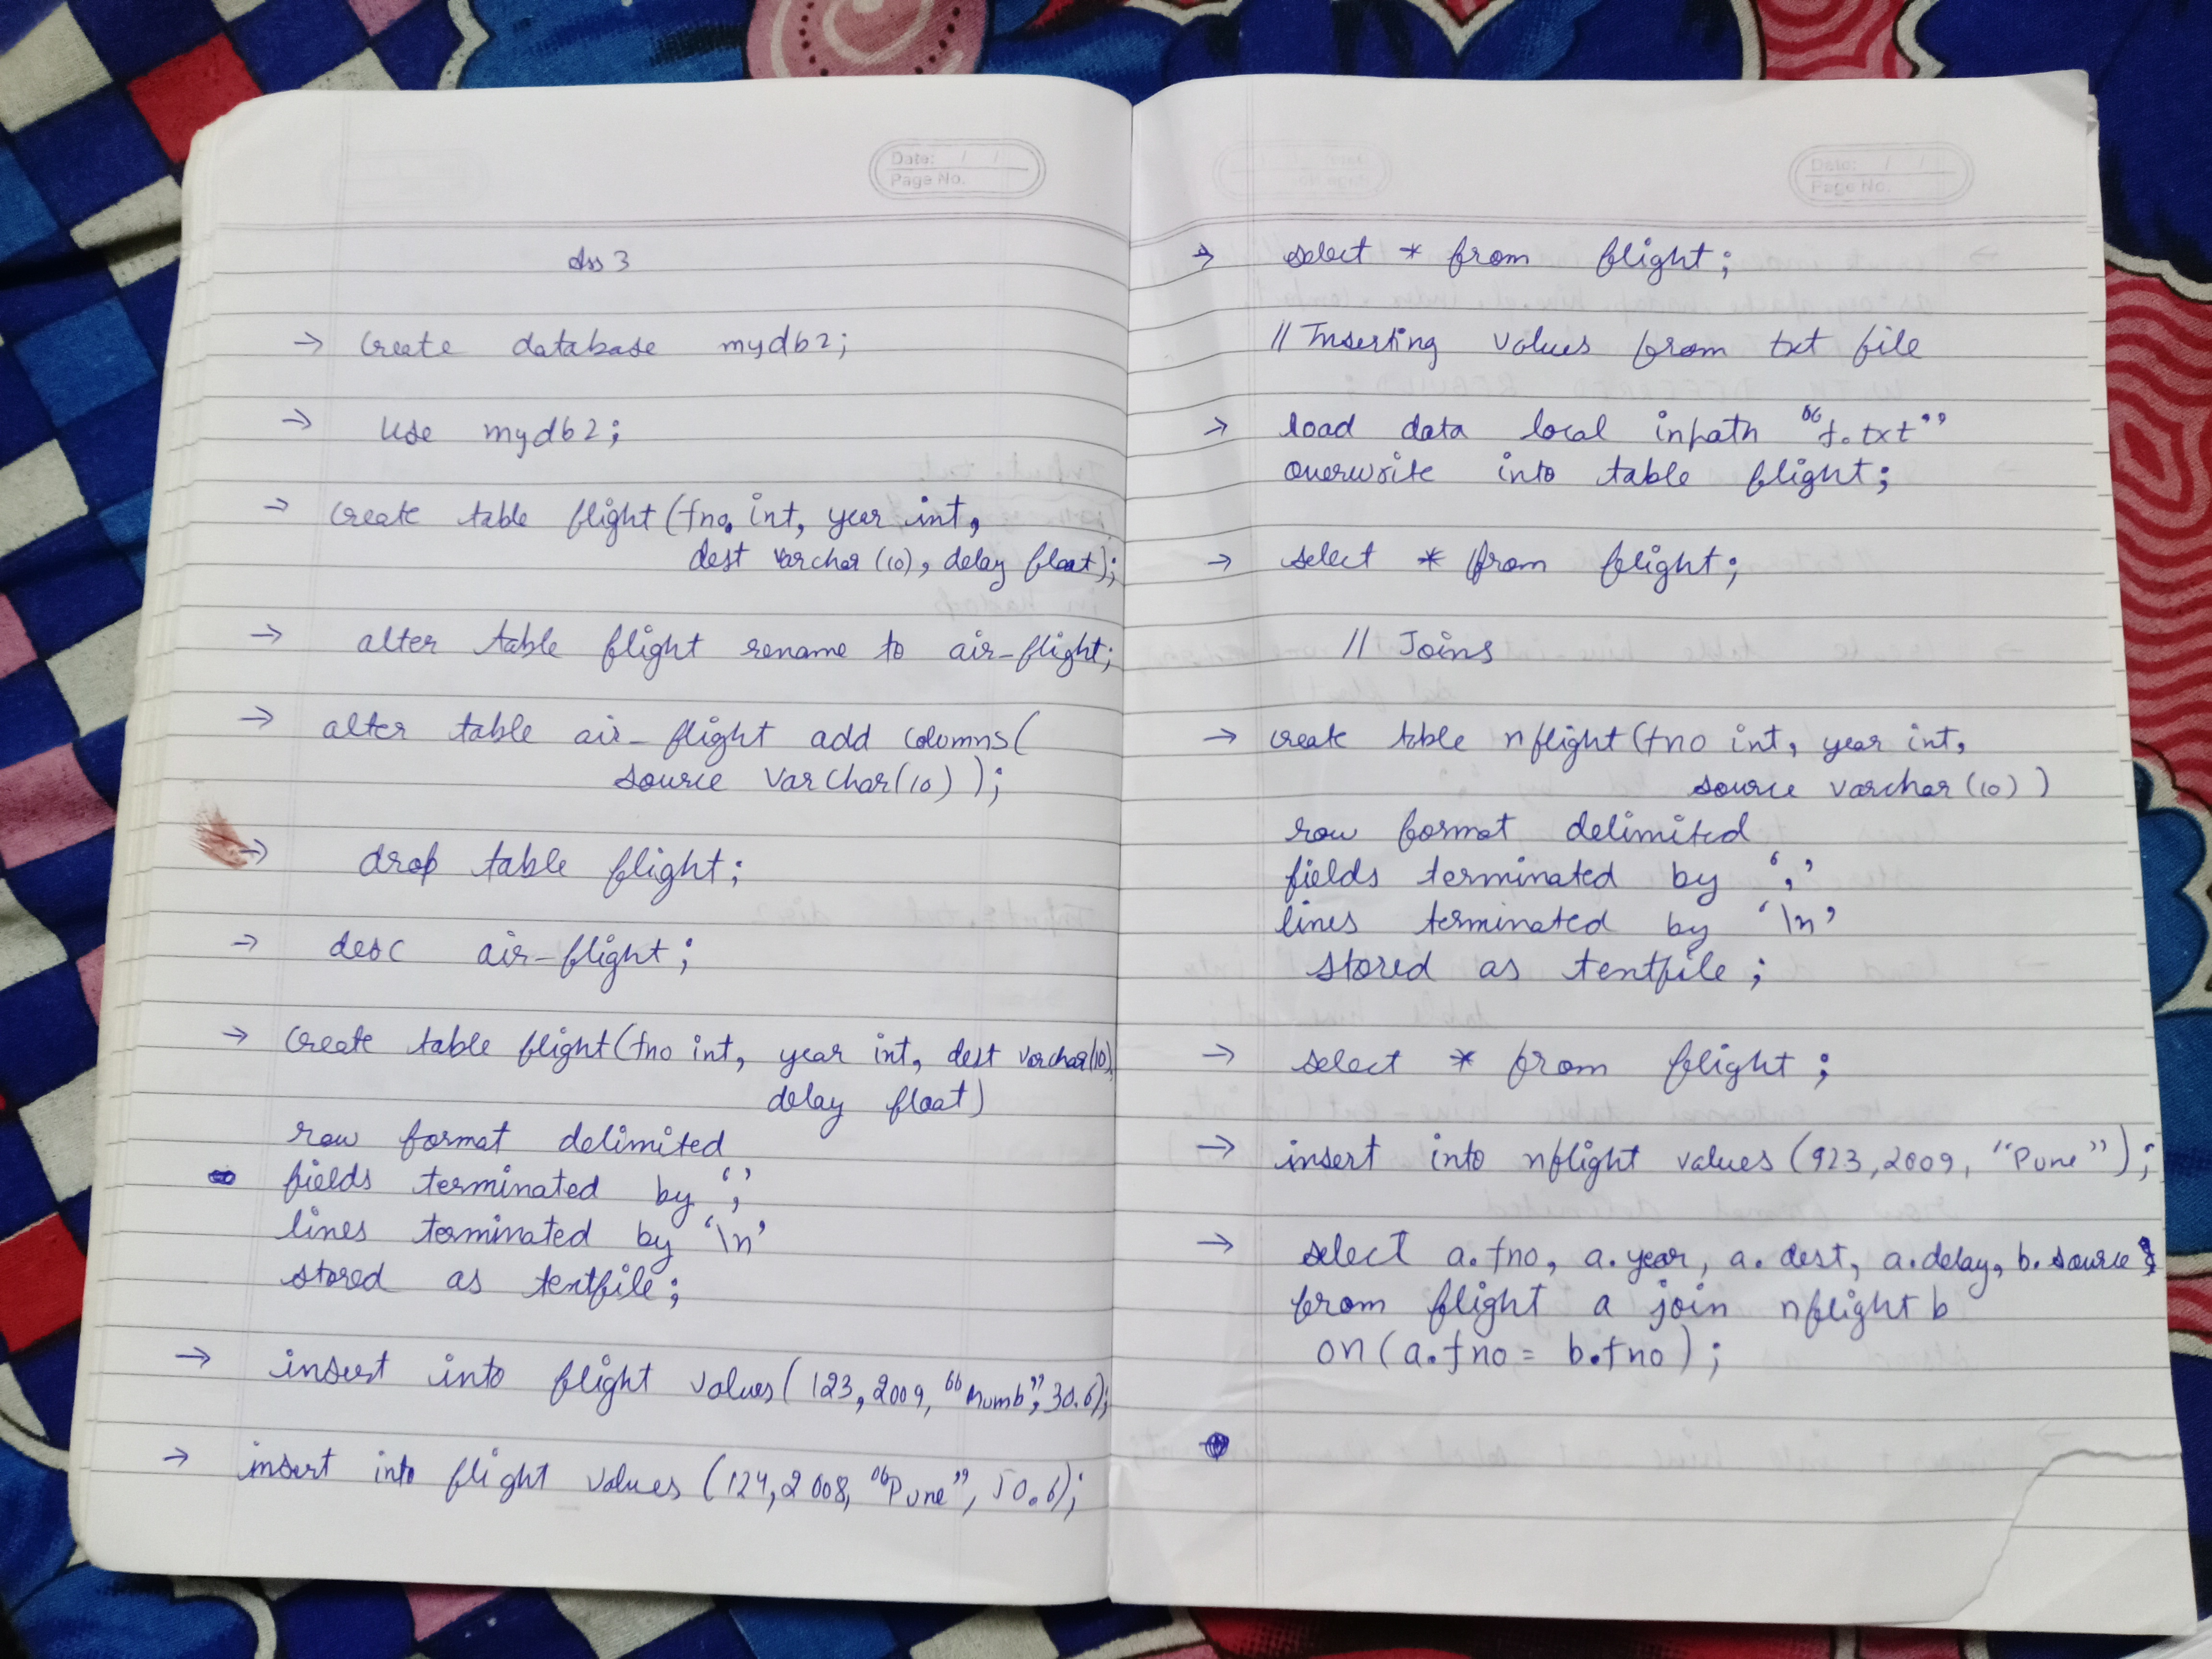 Date: / /
Page No.
Ass 3
→ Create database mydb2;
→ use mydb2;
→ create table flight(fno int, year int,
dest varchar (10), delay float);
→ alter table flight rename to air-flight;
→ alter table air-flight add columns(
source varchar(10) );
→ drop table flight;
→ desc air-flight;
→ Create table flight(fno int, year int, dest varchar(10),
delay float)
row format delimited
fields terminated by ','
lines terminated by '\n'
stored as textfile;
→ insert into flight values( 123, 2009, "Mumb", 30.6);
→ insert into flight values (124, 2008, "Pune", 50.6);
Date: / /
Page No.
→ select * from flight;
// Inserting values from txt file
→ load data local inpath "f.txt"
overwrite into table flight;
→ select * from flight;
// Joins
→ create table nflight(fno int, year int,
source varchar (10) )
row format delimited
fields terminated by ','
lines terminated by '\n'
stored as textfile;
→ select * from flight;
→ insert into nflight values (923, 2009, "Pune");
→ select a.fno, a.year, a.dest, a.delay, b.source
from flight a join nflight b
on (a.fno = b.fno);